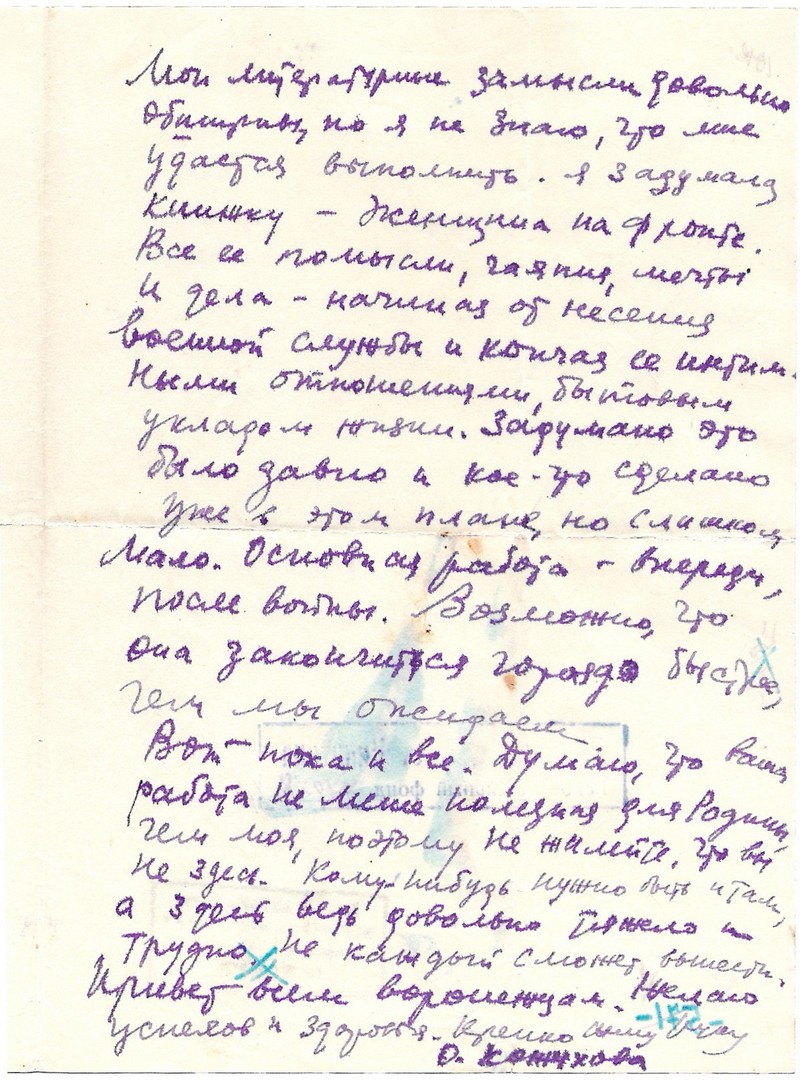 Мои литературные замыслы довольно
обширны, но я не знаю, что мне
удастся выполнить. Я задумала
книжку – Женщина на фронте.
Все ее помыслы, чаяния, мечты
и дела – начиная от несения
военной службы и кончая ее интим-
ными отношениями, бытовым
укладом жизни. Задумано это
было давно и кое-что сделано
уже в этом плане, но слишком
мало. Основная работа – впереди,
после войны. Возможно, что
она закончится гораздо быстрее,
чем мы ожидаем
Вот пока и все. Думаю, что ваша
работа не менее полезная для Родины,
чем моя, поэтому не жалейте, что вы
не здесь. Кому-нибудь нужно быть и там,
а здесь ведь довольно тяжело и
трудно. Не каждый сможет вынести.
Привет всем воронежцам. Желаю
успехов и здоровья. Крепко жму руку
О. Кожухова
-151-
фонд